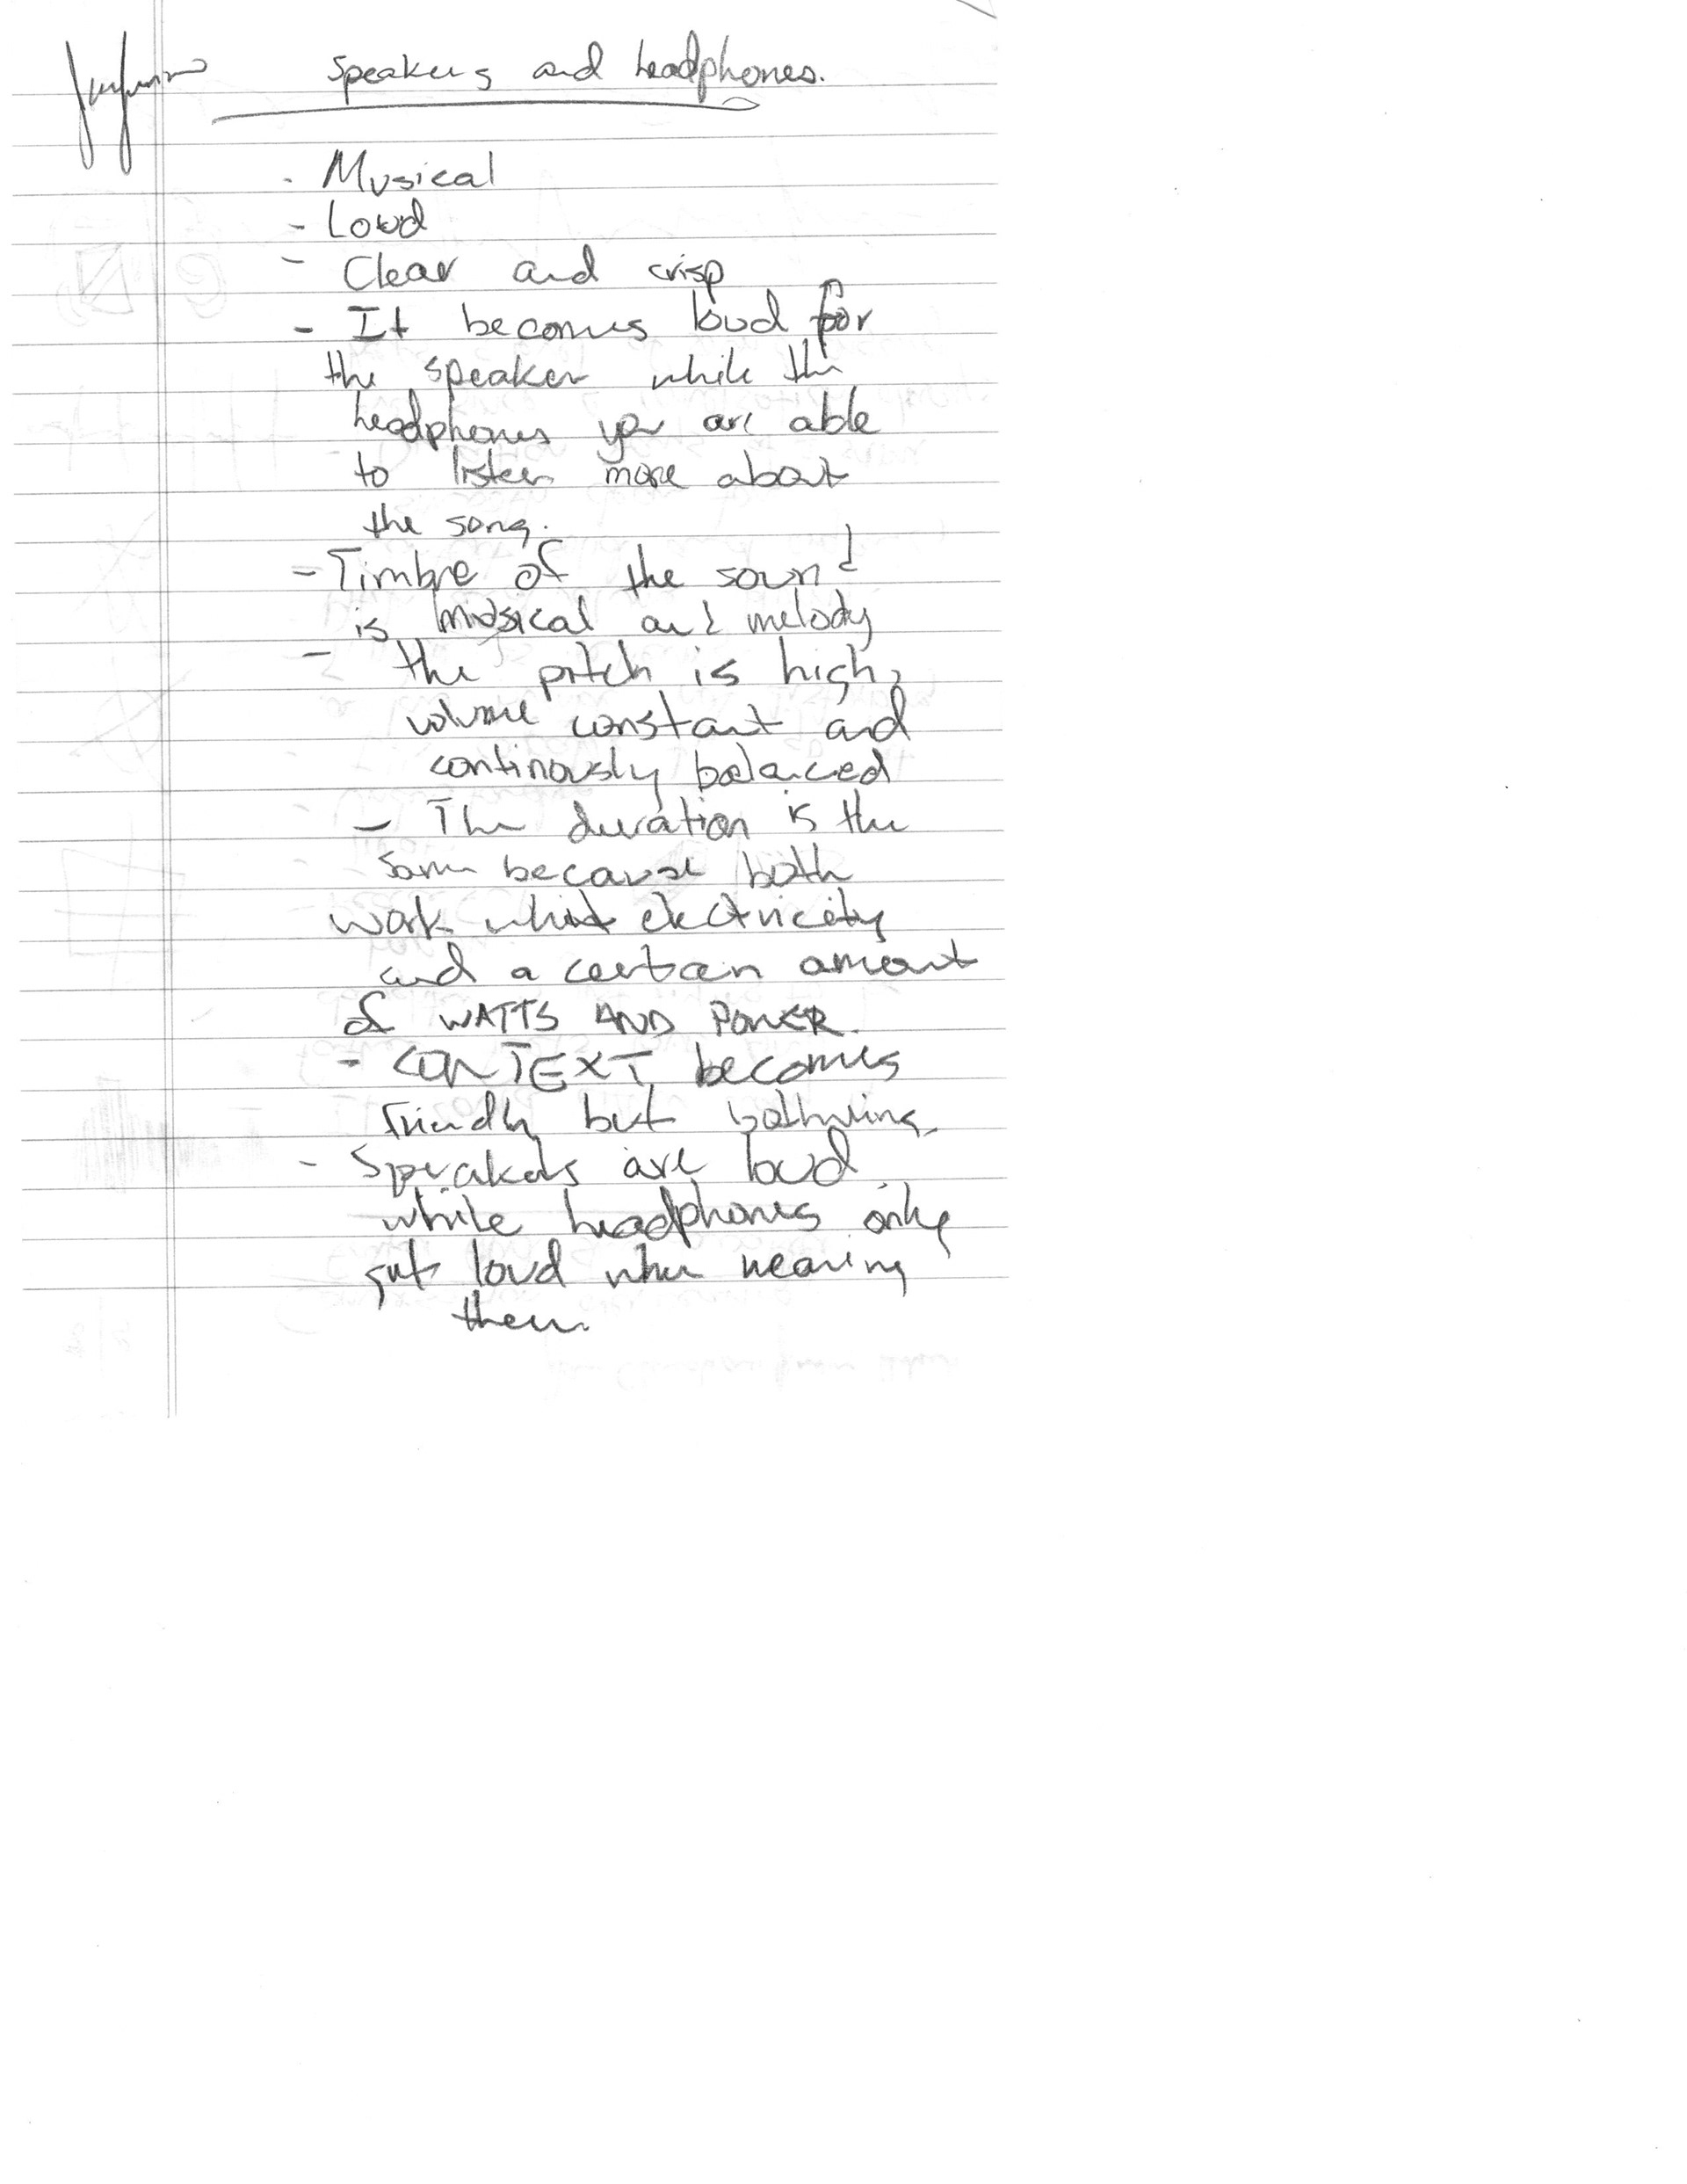 Speakers and headphones.
- Musical
- Loud
- Clear and crisp
- It becomes loud for
the speaker while the
headphones you are able
to listen more about
the song.
- Timbre of the sound
is musical and melody
- the pitch is high,
volume constant and
continously balanced
- The duration is the
same because both
work whit electricity
and a certain amount
of WATTS AND POWER.
- CONTEXT becomes
friendly but bothering.
- Speakers are loud
while headphones only
get loud when wearing
them.